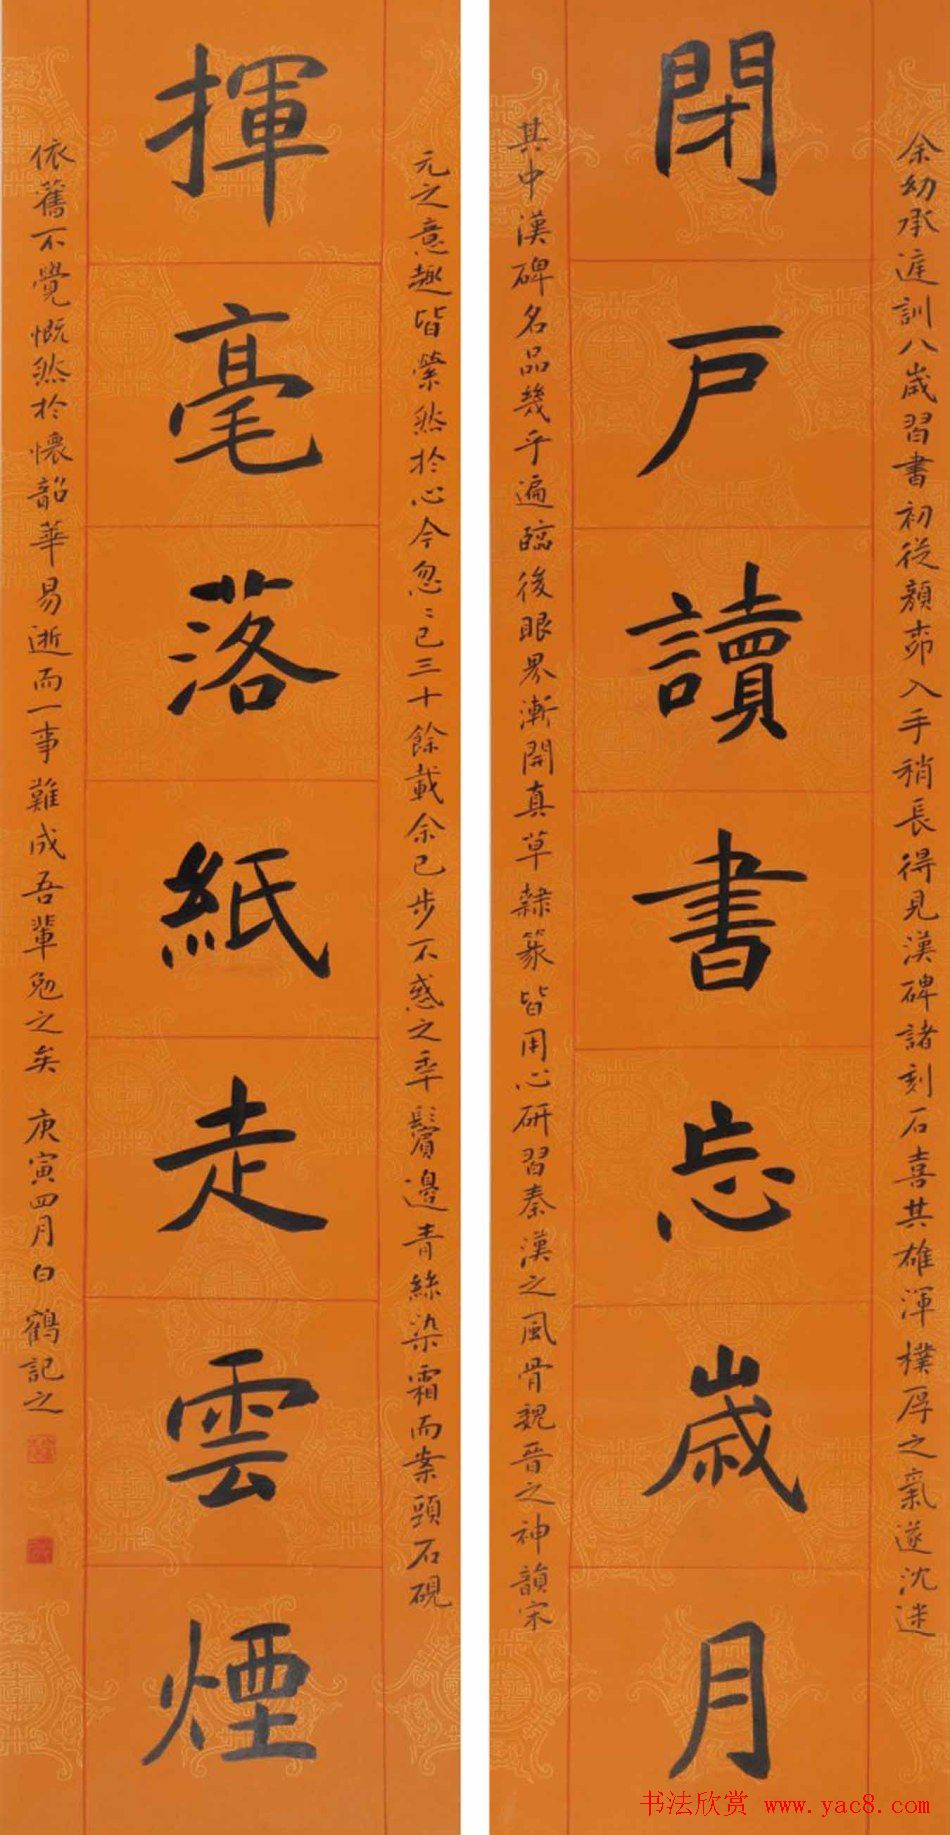 閉戸讀書忘歳月
余幼承庭訓八歲習書初從顏帖入手稍長得見漢碑諸刻石喜其雄渾樸厚之氣遂沈迷
其中漢碑名品幾乎遍臨後眼界漸開真草隸篆皆用心研習秦漢之風骨魏晉之神韻宋
揮毫落紙走雲煙
元之意趣皆縈然於心今忽〻已三十餘載余已步不惑之年鬢邊青絲染霜而案頭石硯
依舊不覺慨然於懷韶華易逝而一事難成吾輩勉之矣 庚寅四月白鶴記之
书法欣赏 www.yac8.com